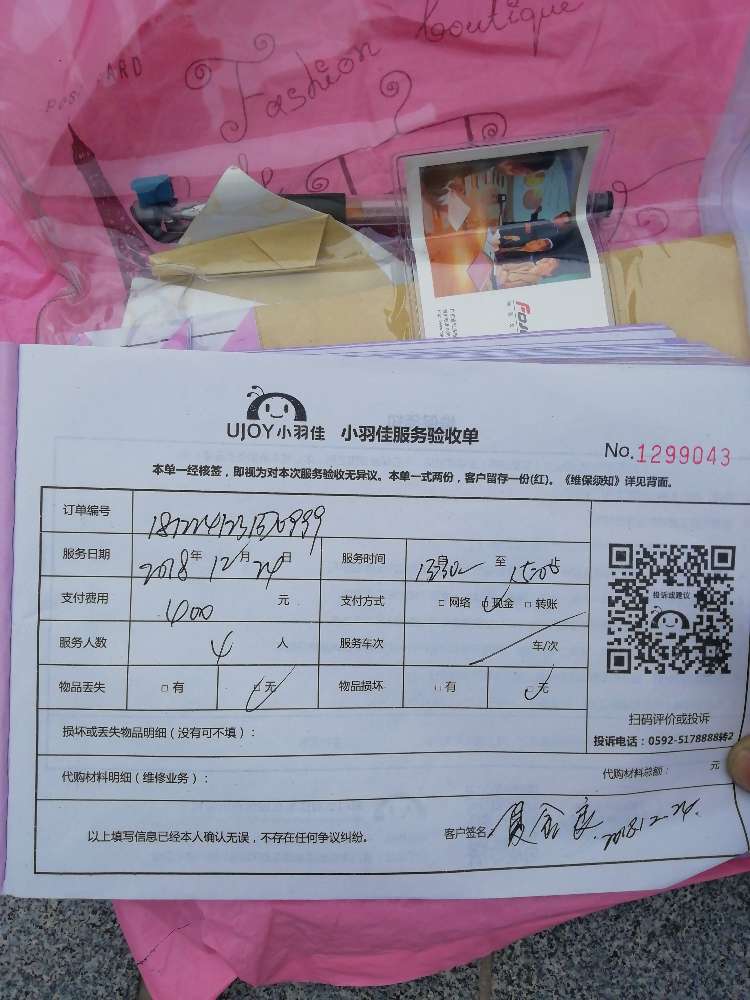 Fashion boutique
UJOY小羽佳 小羽佳服务验收单
No.1299043
本单一经核签，即视为对本次服务验收无异议。本单一式两份，客户留存一份(红)。《维保须知》详见背面。
订单编号
服务日期 2018年 12月 24日 服务时间 至
支付费用 400 元 支付方式 □网络 □现金 □转账
服务人数 4 人 服务车次 车/次
物品丢失 □有 □无 物品损坏 □有 □无
损坏或丢失物品明细（没有可不填）：
代购材料明细（维修业务）： 代购材料总额： 元
以上填写信息已经本人确认无误，不存在任何争议纠纷。 客户签名： 2018.12.24.
投诉或建议
扫码评价或投诉
投诉电话：0592-5178888转2